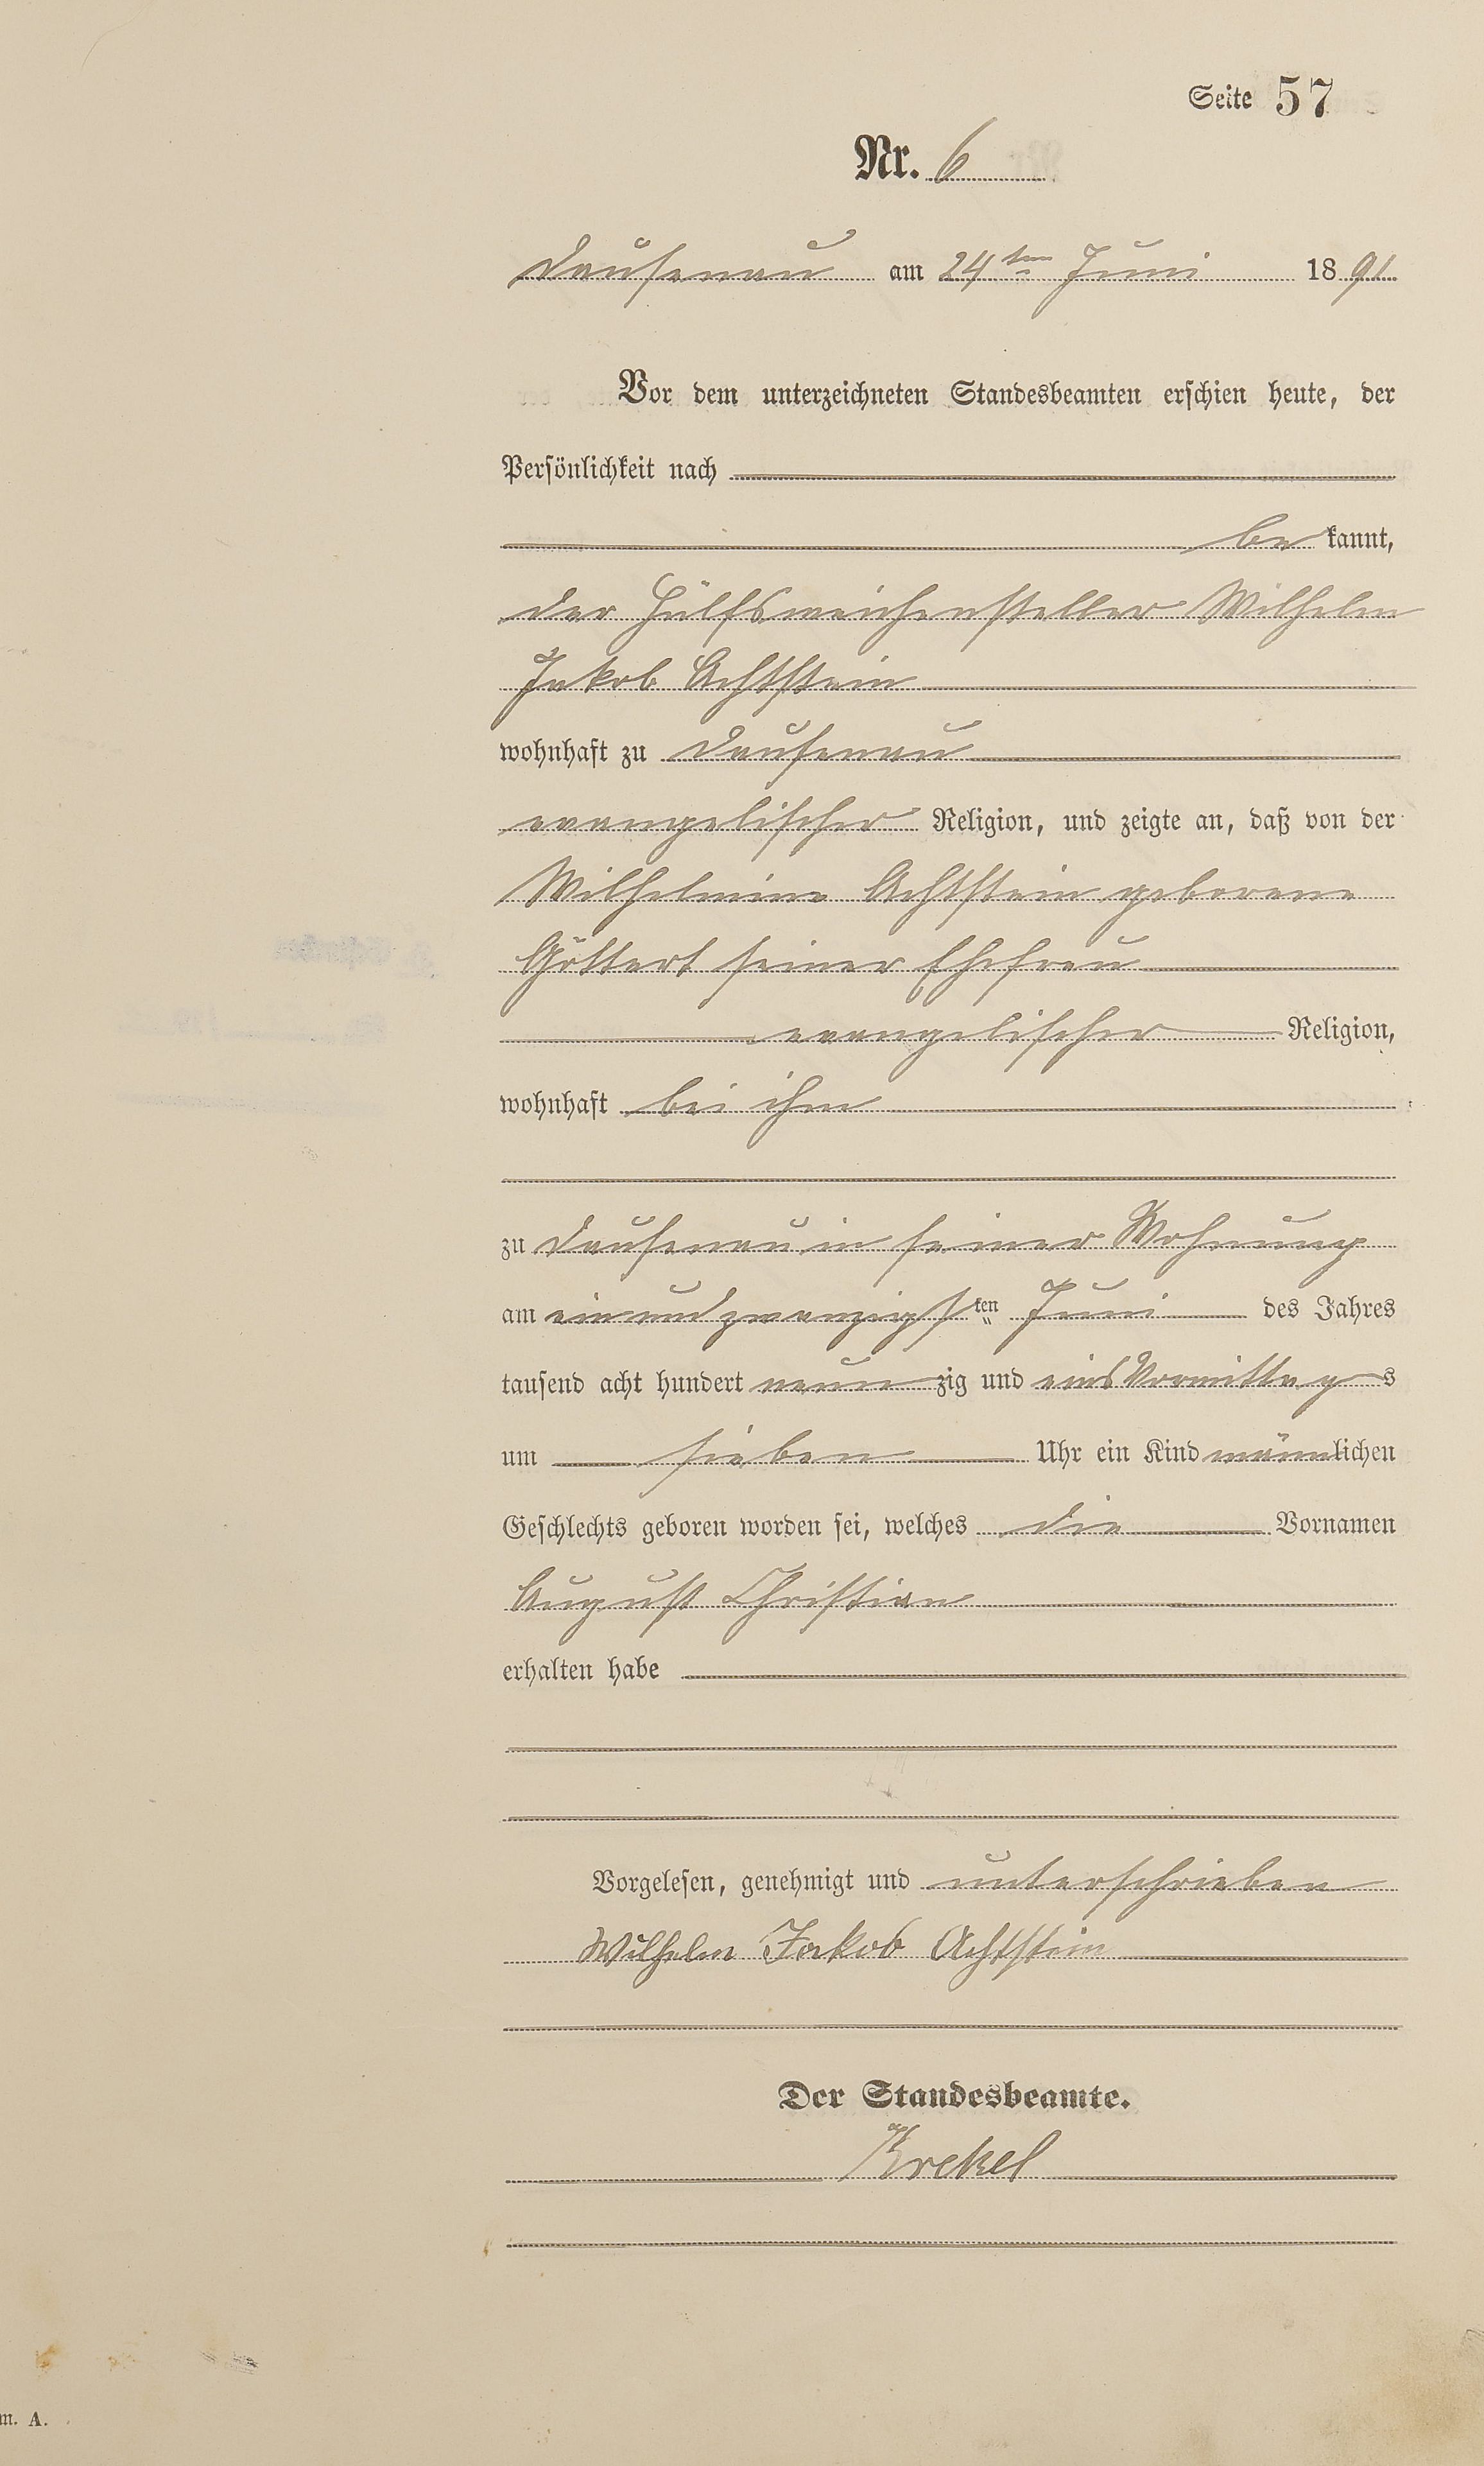 Seite 57
Nr. 6
Dausenau am 24ten Juni 1891
Vor dem unterzeichneten Standesbeamten erschien heute, der
Persönlichkeit nach
bekannt,
der Hülfsweichensteller Wilhelm
Jakob Achtstein
wohnhaft zu Dausenau
evangelischer Religion, und zeigte an, daß von der
Wilhelmine Achtstein geborene
Göttert seiner Ehefrau
evangelischer Religion,
wohnhaft bei ihm
zu Dausenau in seiner Wohnung
am einundzwanzigsten Juni des Jahres
tausend acht hundert neunzig und eins Vormittags
um sieben Uhr ein Kind männlichen
Geschlechts geboren worden sei, welches die Vornamen
August Christian
erhalten habe
Vorgelesen, genehmigt und unterschrieben
Wilhelm Jakob Achtstein
Der Standesbeamte.
Krekel
m. A.